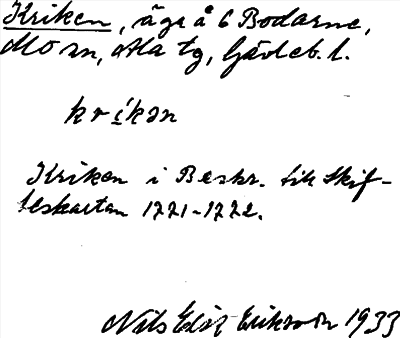 Kriken, äga å 6 Bodarne,
Mo sn, Ala tg, Gävleb. l.
kríkən
Kriken i Beskr. till Skif-
teskartan 1721-1722.
Nils Erik Erikson 1933